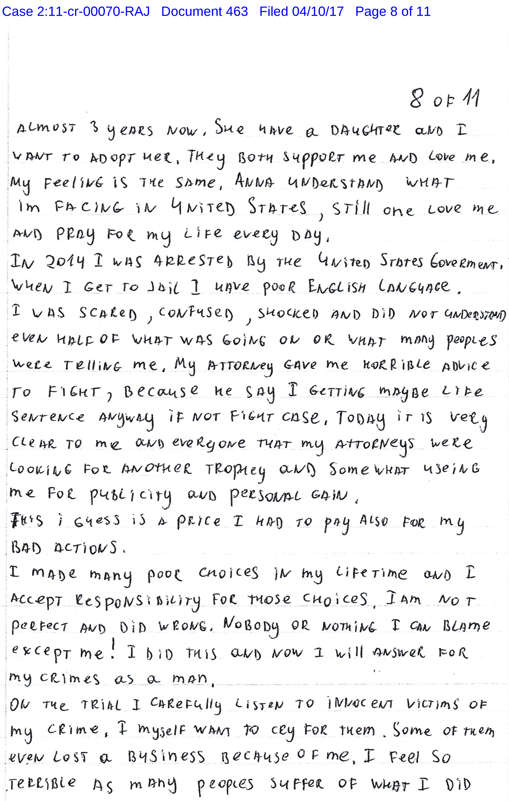 Case 2:11-cr-00070-RAJ Document 463 Filed 04/10/17 Page 8 of 11
8 OF 11
ALMOST 3 years NOW. SHE HAVE a DAUGHTER AND I
WANT TO ADOPT HER. They BOTH SUPPORT me AND LOVE me.
My Feeling is THE SAME. ANNA UNDERSTAND WHAT
im FACING iN UNiTED STATES, STill one LOVE me
AND PRAY FOR my LIFE every DAY.
IN 2014 I WAS ARRESTED By THE UNITED STATES GOVERMENT.
WHEN I GET TO JAIL I HAVE POOR ENGLISH LANGUAGE.
I WAS SCARED, CONFUSED, SHOCKED AND DID NOT UNDERSTAND
EVEN HALF OF WHAT WAS GOING ON OR WHAT mANy peoples
WERE TELLING me. My ATTORNEY GAVE me HORRIBLE ADVICE
TO FIGHT, BECAUSE HE SAY I GETTING MAYBE LIFE
SENTENCE ANYWAY iF NOT FIGHT CASE. TODAY iT IS VERY
CLEAR TO me AND EVERYONE THAT my ATTORNEYS WERE
LOOKING FOR ANOTHER TROPHEY AND SOMEWHAT USEING
me FOR PUBLICITY AND PERSONAL GAIN.
THIS i GUESS IS A PRICE I HAD TO PAY ALSO FOR my
BAD ACTIONS.
I MADE MANY POOR CHOICES IN my LIFETIME AND I
ACCEPT RESPONSIBILITY FOR THOSE CHOICES. I AM NOT
PERFECT AND DID WRONG. NOBODY OR NOTHING I CAN BLAME
EXCEPT me! I DID THIS AND NOW I WILL ANSWER FOR
my CRIMES AS A MAN.
ON THE TRIAL I CAREFULLY LISTEN TO INNOCENT VICTIMS OF
my CRIME, I MYSELF WANT TO CRY FOR THEM. SOME OF THEM
EVEN LOST A BUSINESS BECAUSE OF ME. I FEEL SO
TERRIBLE AS MANY PEOPLES SUFFER OF WHAT I DID